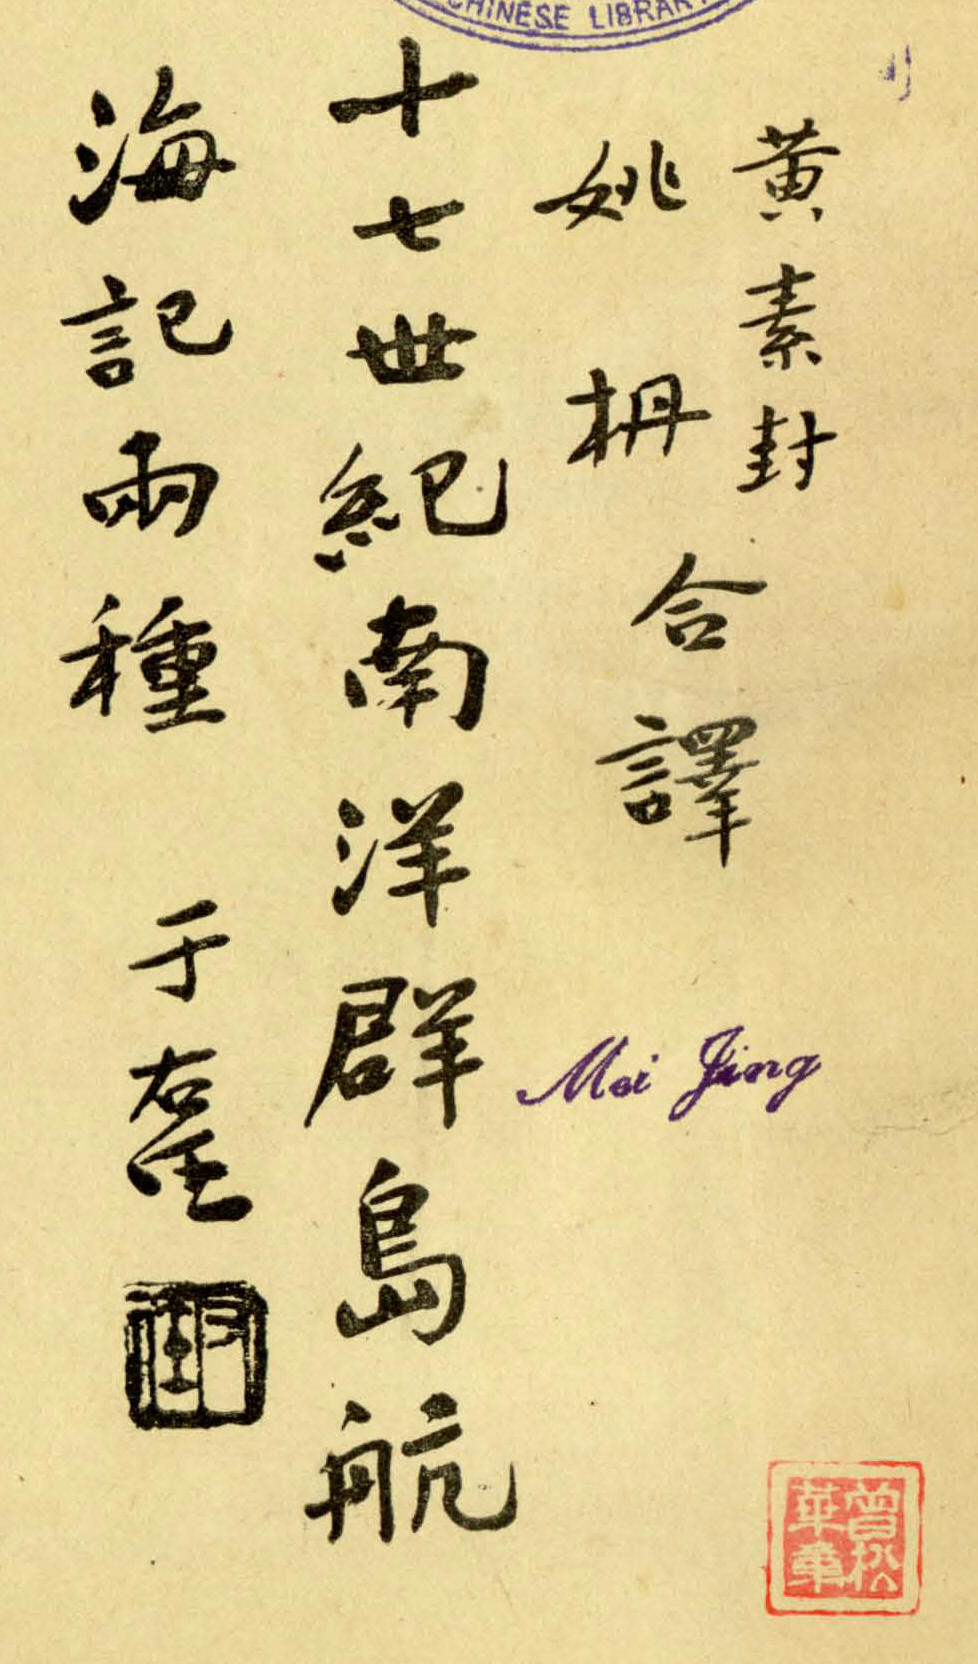 CHINESE LIBRARY
黃素封
姚枬
合譯
十七世紀南洋群島航
海記兩種
于右任
Mei Jing
曾松華章